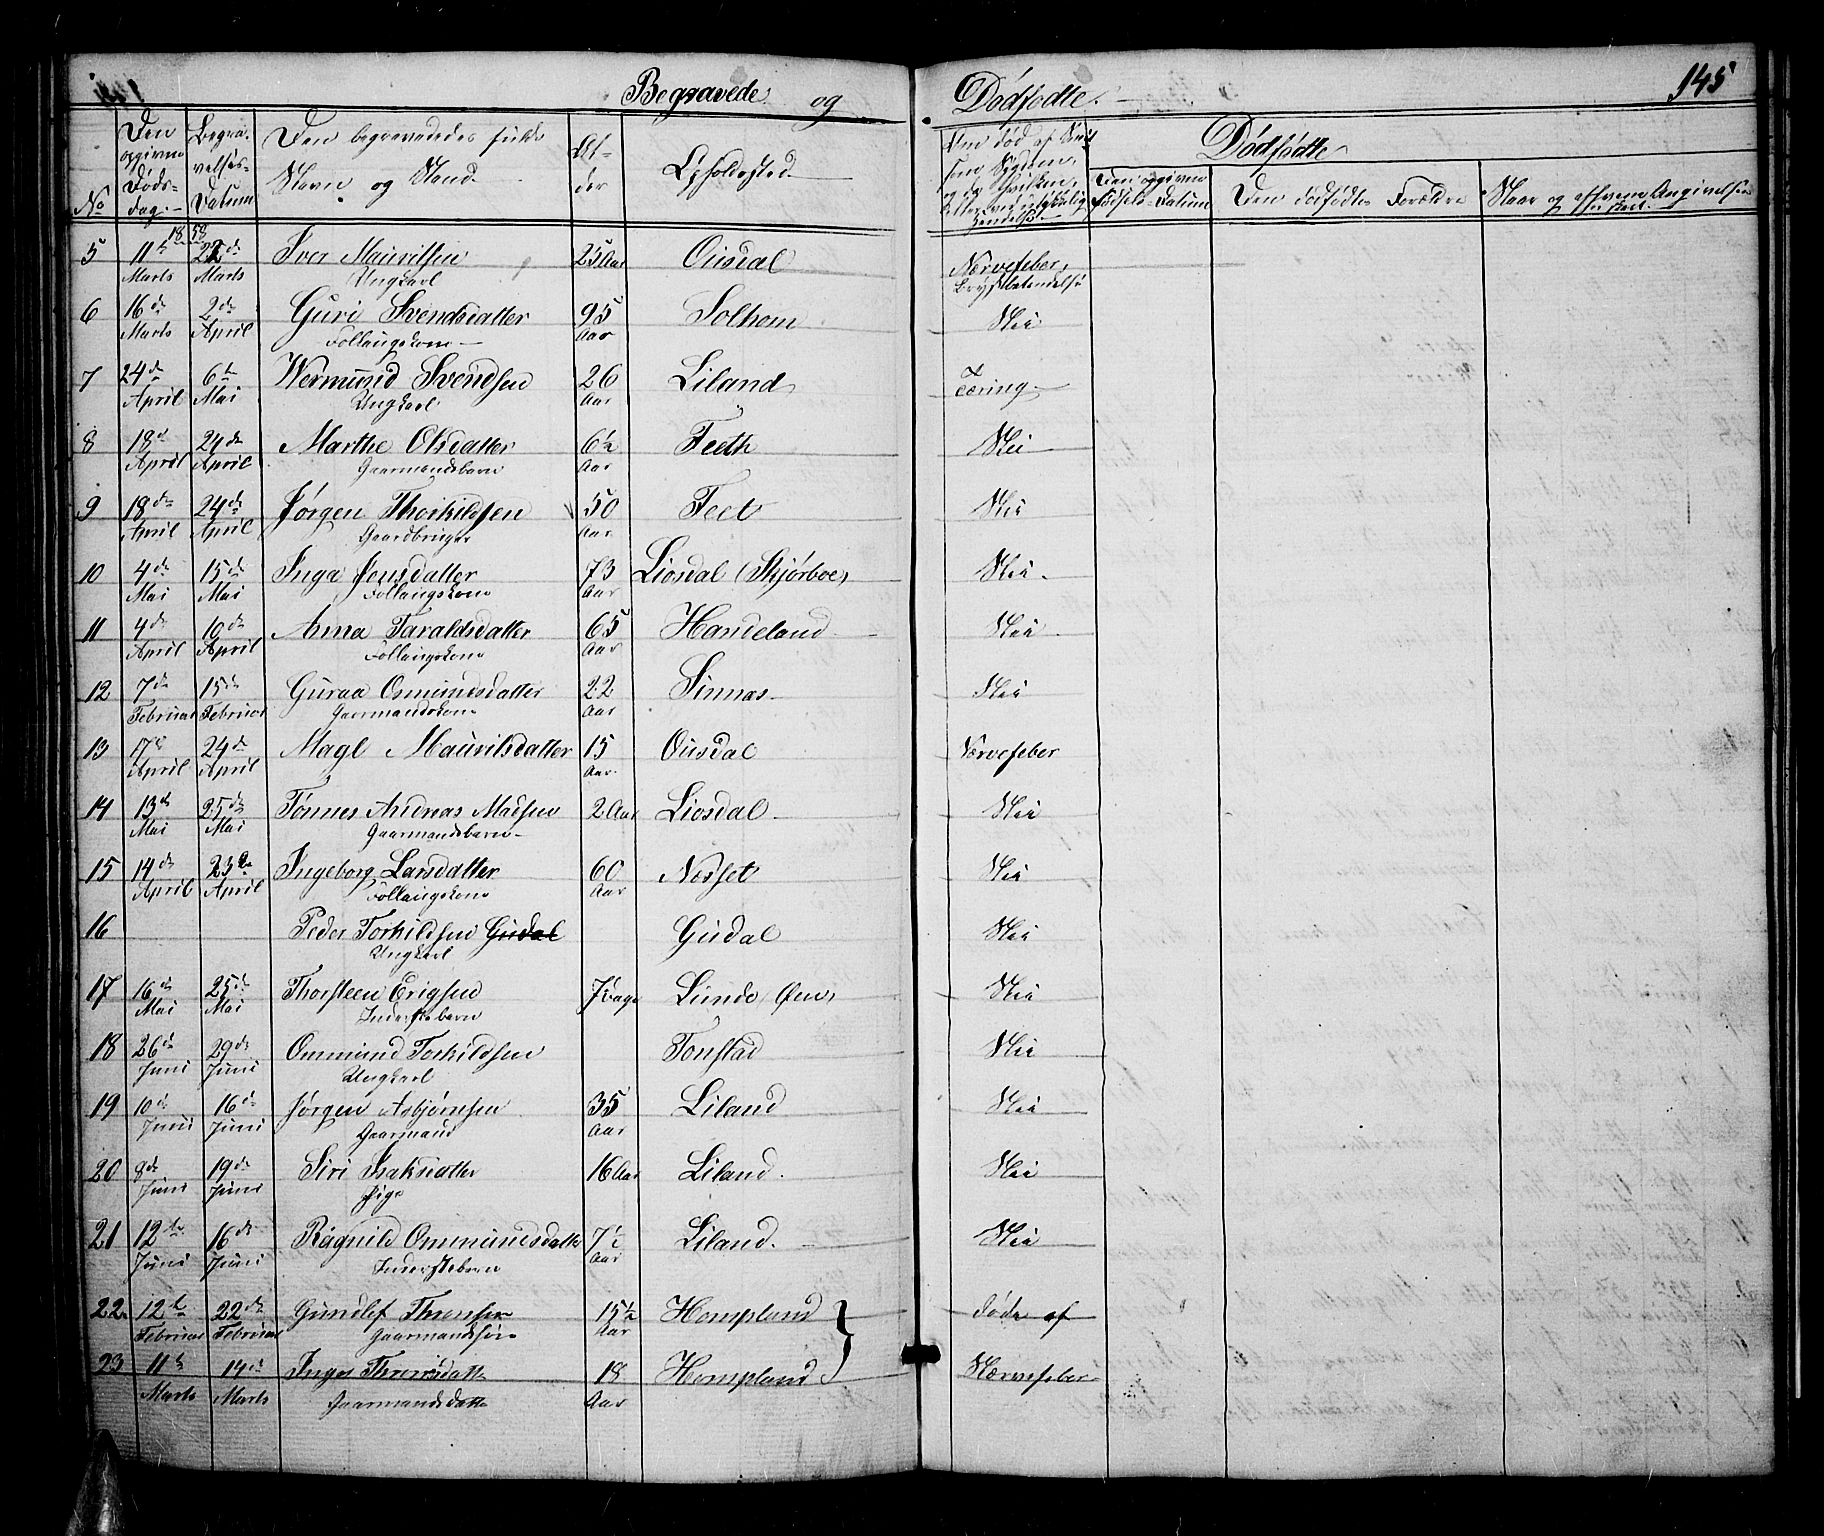 Begravede og Dødfødte.
145
No
Den opgivne Dødsdag.
Begravelses-Datum
Den begravedes fulde Navn og Stand.
Alder
Opholdssted
Dødfødte
Den opgivne Fødsels-Datum
Den dødfødtes Forældre
1858
5 11te Marts 22de Marts Iver Mauritsen Ungkarl 25 Aar Ousdal Nervefeber, Brystbetendelse
6 16de Marts 2de April Guri Svendsdatter Follaugskone 95 Aar Solhom Nei
7 24de April 6te Mai Wermund Svendsen Ungkarl 26 Aar Liland Tæring
8 18de April 24de April Marthe Olsdatter Gaarmandsbarn 6½ Aar Feeth Nei
9 18de April 24de April Jørgen Thorkildsen Gaardbruger 50 Aar Feet Nei
10 4de Mai 15de Mai Inga Jensdatter Follaugskone 73 Aar Liosdal (Skjørboe) Nei.
11 4de April 10de April Anna Taraldsdatter Follaugskone 65 Aar Handeland Nei
12 7de Februar 15de Februar Guraa Osmundsdatter Gaarmandskone 22 Aar Sinnas Nei
13 17de April 24de April Magl Mauritsdatter 15 Aar Ousdal Nervefeber
14 13de Mai 25de Mai Tønnes Andreas Madsen Gaarmandsbarn 2 Aar Liosdal Nei
15 14de April 23de April Ingeborg Larsdatter Follaugskone 60 Aar Nesset Nei
16 Peder Torkildsen Gudal Ungkarl Gudal Nei
17 16de Mai 25de Mai Thorsteen Erigsen Inderstebarn 7 Dage Lunde (Øen) Nei
18 26de Juni 29de Juni Ommund Torkildsen Ungkarl Tonstad Nei
19 10de Juni 16de Juni Jørgen Asbjørnsen Gaarmand 35 Aar Liland Nei
20 8de Juni 19de Juni Siri Isaksdatter Pige 16 Aar Liland. Nei
21 12te Juni 16de Juni Ragnild Ommundsdatter Inderstebarn 7½ Aar Liland. Nei
22. 12te Februar 22de Februar Gundlef Thronsen Gaarmandssøn 15½ Aar Hompland døde af
23 11te Marts 14de Marts Inger Thronsdatter Gaarmandsdatter 18 Aar Hompland Nærvefeber